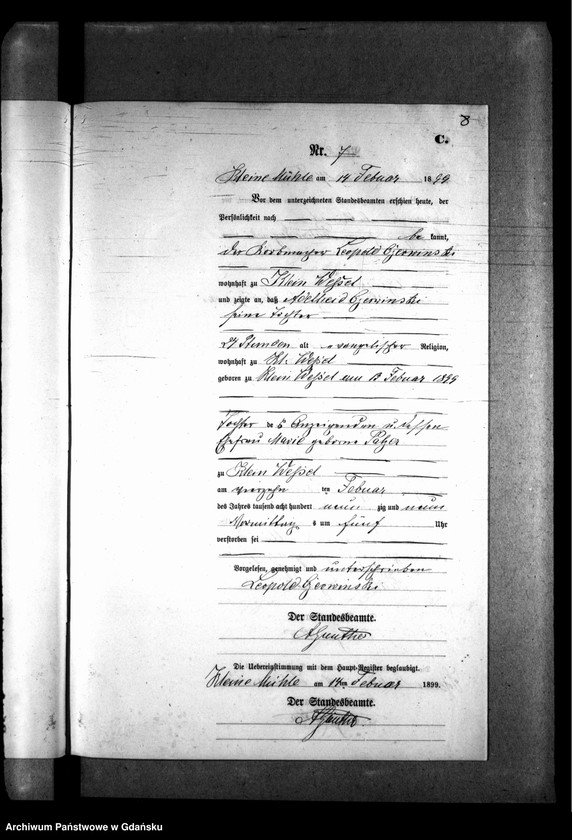 8
C.
Nr. 7
Kleine Mühle am 14 Februar 1899
Vor dem unterzeichneten Standesbeamten erschien heute, der
Persönlichkeit nach
be kannt,
der Korbmacher Leopold Czerwinski
wohnhaft zu Klein Wessel
und zeigte an, daß Adelheid Czerwinski
seine Tochter
24 Stunden alt evangelischer Religion,
wohnhaft zu Kl: Wessel
geboren zu Klein Wessel am 13 Februar 1899
Tochter des Anzeigenden u. dessen
Ehefrau Marie geborne
zu Klein Wessel
am vierzehn ten Februar
des Jahres tausend acht hundert neun zig und neun
Vormittag s um fünf Uhr
verstorben sei
Vorgelesen, genehmigt und unterschrieben
Leopold Czerwinski
Der Standesbeamte.
AGunther
Die Uebereinstimmung mit dem Haupt-Register beglaubigt.
Kleine Mühle am 14ten Februar 1899.
Der Standesbeamte.
AGunther
Archiwum Państwowe w Gdańsku